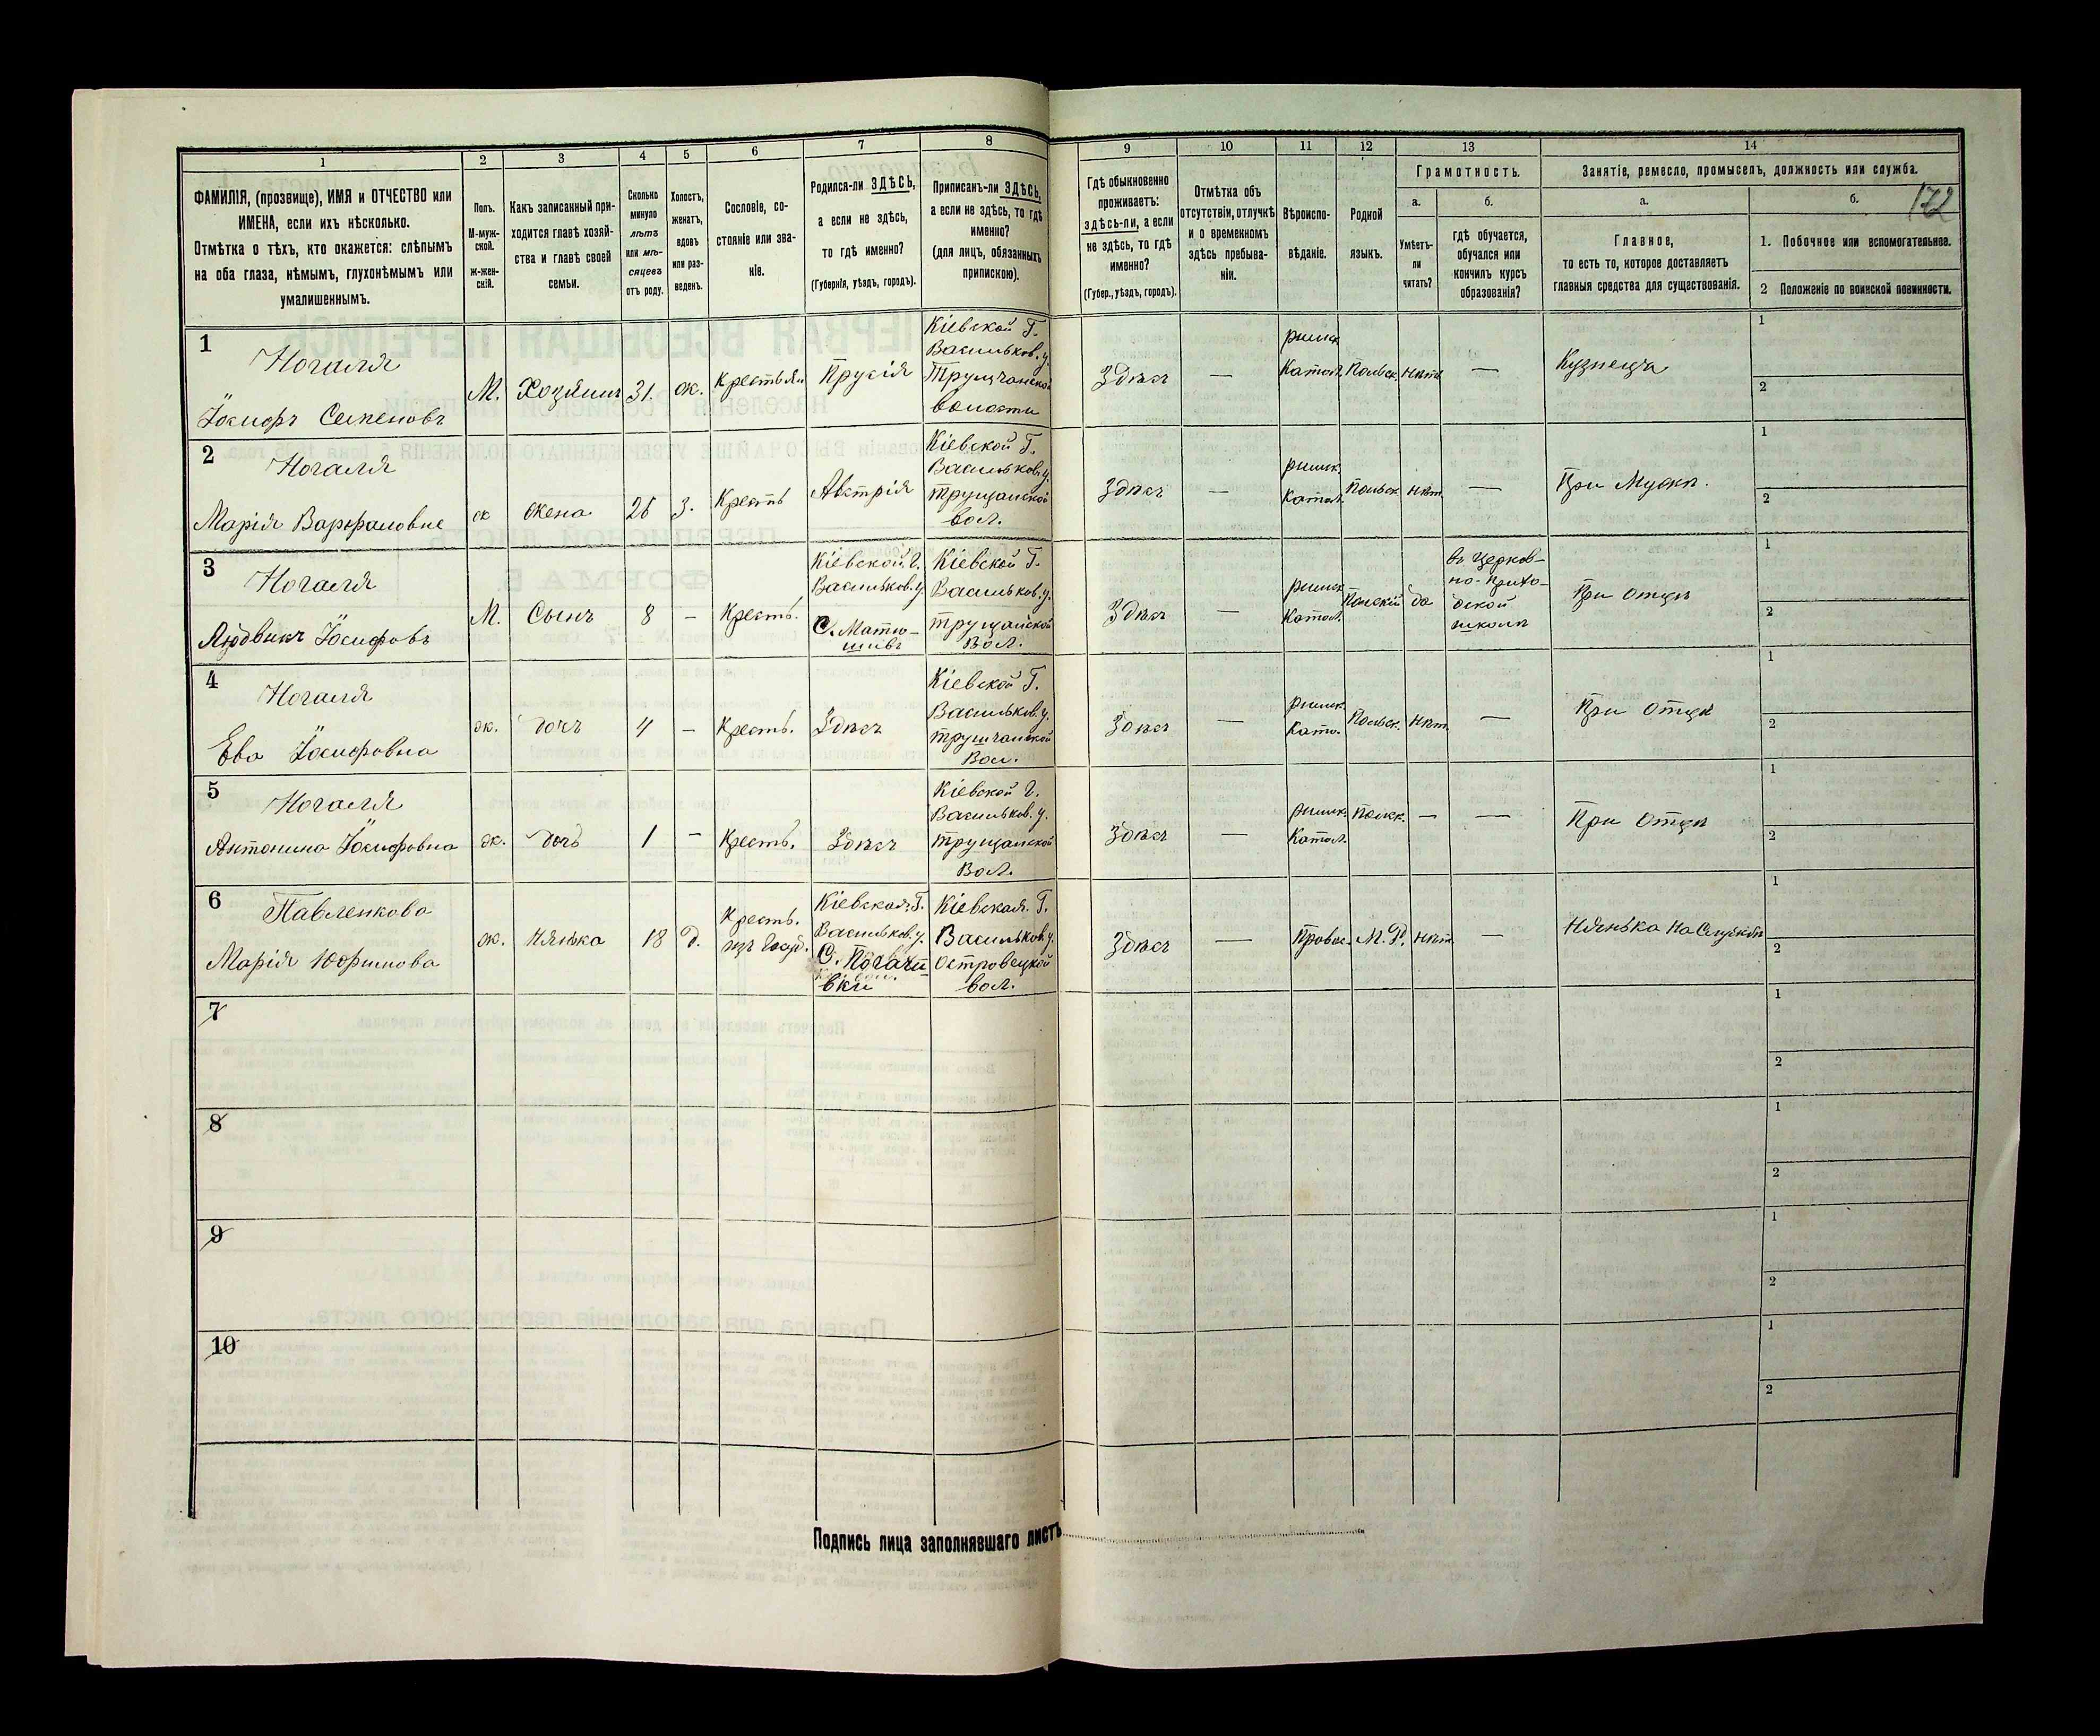 1
2
3
4
5
6
7
8
9
10
11
12
13
14
ФАМИЛІЯ, (прозвище), ИМЯ и ОТЧЕСТВО или
ИМЕНА, если ихъ нѣсколько.
Отмѣтка о тѣхъ, кто окажется: слѣпымъ
на оба глаза, нѣмымъ, глухонѣмымъ или
умалишеннымъ.
Полъ.
М-муж-
ской.
ж-жен-
скій.
Какъ записанный при-
ходится главѣ хозяй-
ства и главѣ своей
семьи.
Сколько
минуло
лѣтъ
или мѣ-
сяцевъ
отъ роду.
Холостъ,
женатъ,
вдовъ
или раз-
веденъ.
Сословіе, со-
стояніе или зва-
ніе.
Родился-ли ЗДѢСЬ,
а если не здѣсь,
то гдѣ именно?
(Губернія, уѣздъ, городъ).
Приписанъ-ли ЗДѢСЬ,
а если не здѣсь, то гдѣ
именно?
(для лицъ, обязанныхъ
припискою).
Гдѣ обыкновенно
проживаетъ:
здѣсь-ли, а если
не здѣсь, то гдѣ
именно?
(Губер., уѣздъ, городъ).
Отмѣтка объ
отсутствіи, отлучкѣ
и о временномъ
здѣсь пребыва-
ніи.
Вѣроиспо-
вѣданіе.
Родной
языкъ.
Грамотность.
а.
Умѣетъ-
ли
читать?
б.
гдѣ обучается,
обучался или
кончилъ курсъ
образованія?
Занятіе, ремесло, промыселъ, должность или служба.
а.
Главное,
то есть то, которое доставляетъ
главныя средства для существованія.
б.
172
1. Побочное или вспомогательное.
2 Положеніе по воинской повинности.
1
Ногаля
Іосифъ Семеновъ
М.
Хозяинъ
31.
ж.
Крестьян
Прусія
Кіевской Г.
Васильков. у.
Трущанской
волости
Здѣсь
—
римск
Катол.
Польск.
нѣтъ
—
Кузнецъ
1
2
2
Ногаля
Марія
ж
жена
26
З.
Кресть
Австрія
Кіевской Г.
Васильков. у.
трущанской
вол.
Здѣсь
—
римск.
Катол.
Польск.
нѣт
—
При Мужѣ.
1
2
3
Ногаля
Людвикъ Іосифовъ
М.
Сынъ
8
–
Кресть.
Кіевской. Г.
Васильков. у.
С. Матю-
шивъ
Кіевской Г.
Васильков. у.
трущанской
Вол.
Здѣсь
—
римск.
Катол.
Польскій
да
въ церков-
но-прихо-
дской
школѣ
При отцѣ
1
2
4
Ногаля
Ева Іосифовна
ж.
дочъ
4
–
Кресть.
Здѣсь
Кіевской Г.
Васильков. у.
трущчанской
Вол.
Здѣсь
—
римск.
Като.
Польск.
Нѣт.
—
При Отцѣ
1
2
5
Ногаля
Антонина Іосифовна
ж.
дочъ
1
–
Кресть.
Здѣсь
Кіевской Г.
Васильков. у.
трущанской
Вол.
Здѣсь
—
римск.
Катол.
Польск.
—
—
При Отцѣ
1
2
6
Павленкова
Марія
ж.
Нянька
18
д.
Кресть.
Кіевская. Г.
Васильков. у.
вки
Кіевская. Г.
Васильков. у.
островецкой
вол.
Здѣсь
—
Правос.
М. Р.
нѣт.
—
Нянька На Службѣ
1
2
7
1
2
8
1
2
9
1
2
10
1
2
Подпись лица заполнявшаго листъ